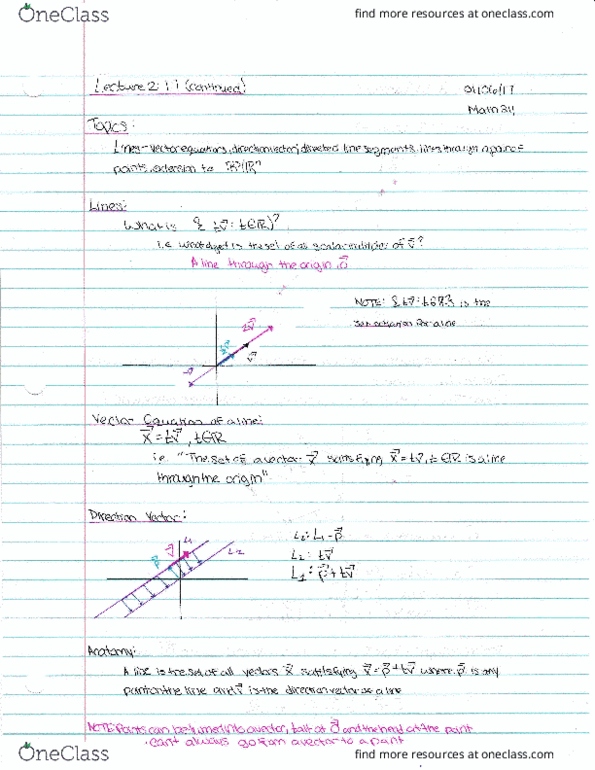 OneClass
find more resources at oneclass.com
Lecture 2: 1.1 (continued)
01/06/17
Math 34
Topics:
Lines - vector equations, direction vector, directed line segments, lines through a pair of
points, extension to
Lines:
What is { t𝑣⃗ : t∈ℝ}?
i.e. what object is the set of all scalar multiples of v⃗?
A line through the origin, o⃗
NOTE: {tv⃗: t∈ℝ} is the
set notation for a line
2v⃗
v⃗
-v⃗
Vector Equation of a line:
x⃗ = tv⃗, t∈ℝ
i.e. "The set of a vector x⃗ satisfying x⃗ = tv⃗, t∈ℝ is a line
through the origin"
Direction Vector:
p⃗
v⃗
L1
L2
L2: L1 - p⃗
L2: tv⃗
L1: p⃗ + tv⃗
Anatomy:
A line is the set of all vectors x⃗ satisfying v⃗ = p⃗ + tv⃗ where p⃗ is any
point on the line and v⃗ is the direction vector of a line
NOTE: Points can be turned into a vector, tail at o⃗ and the head at the point
· can't always go from a vector to a point
OneClass
find more resources at oneclass.com